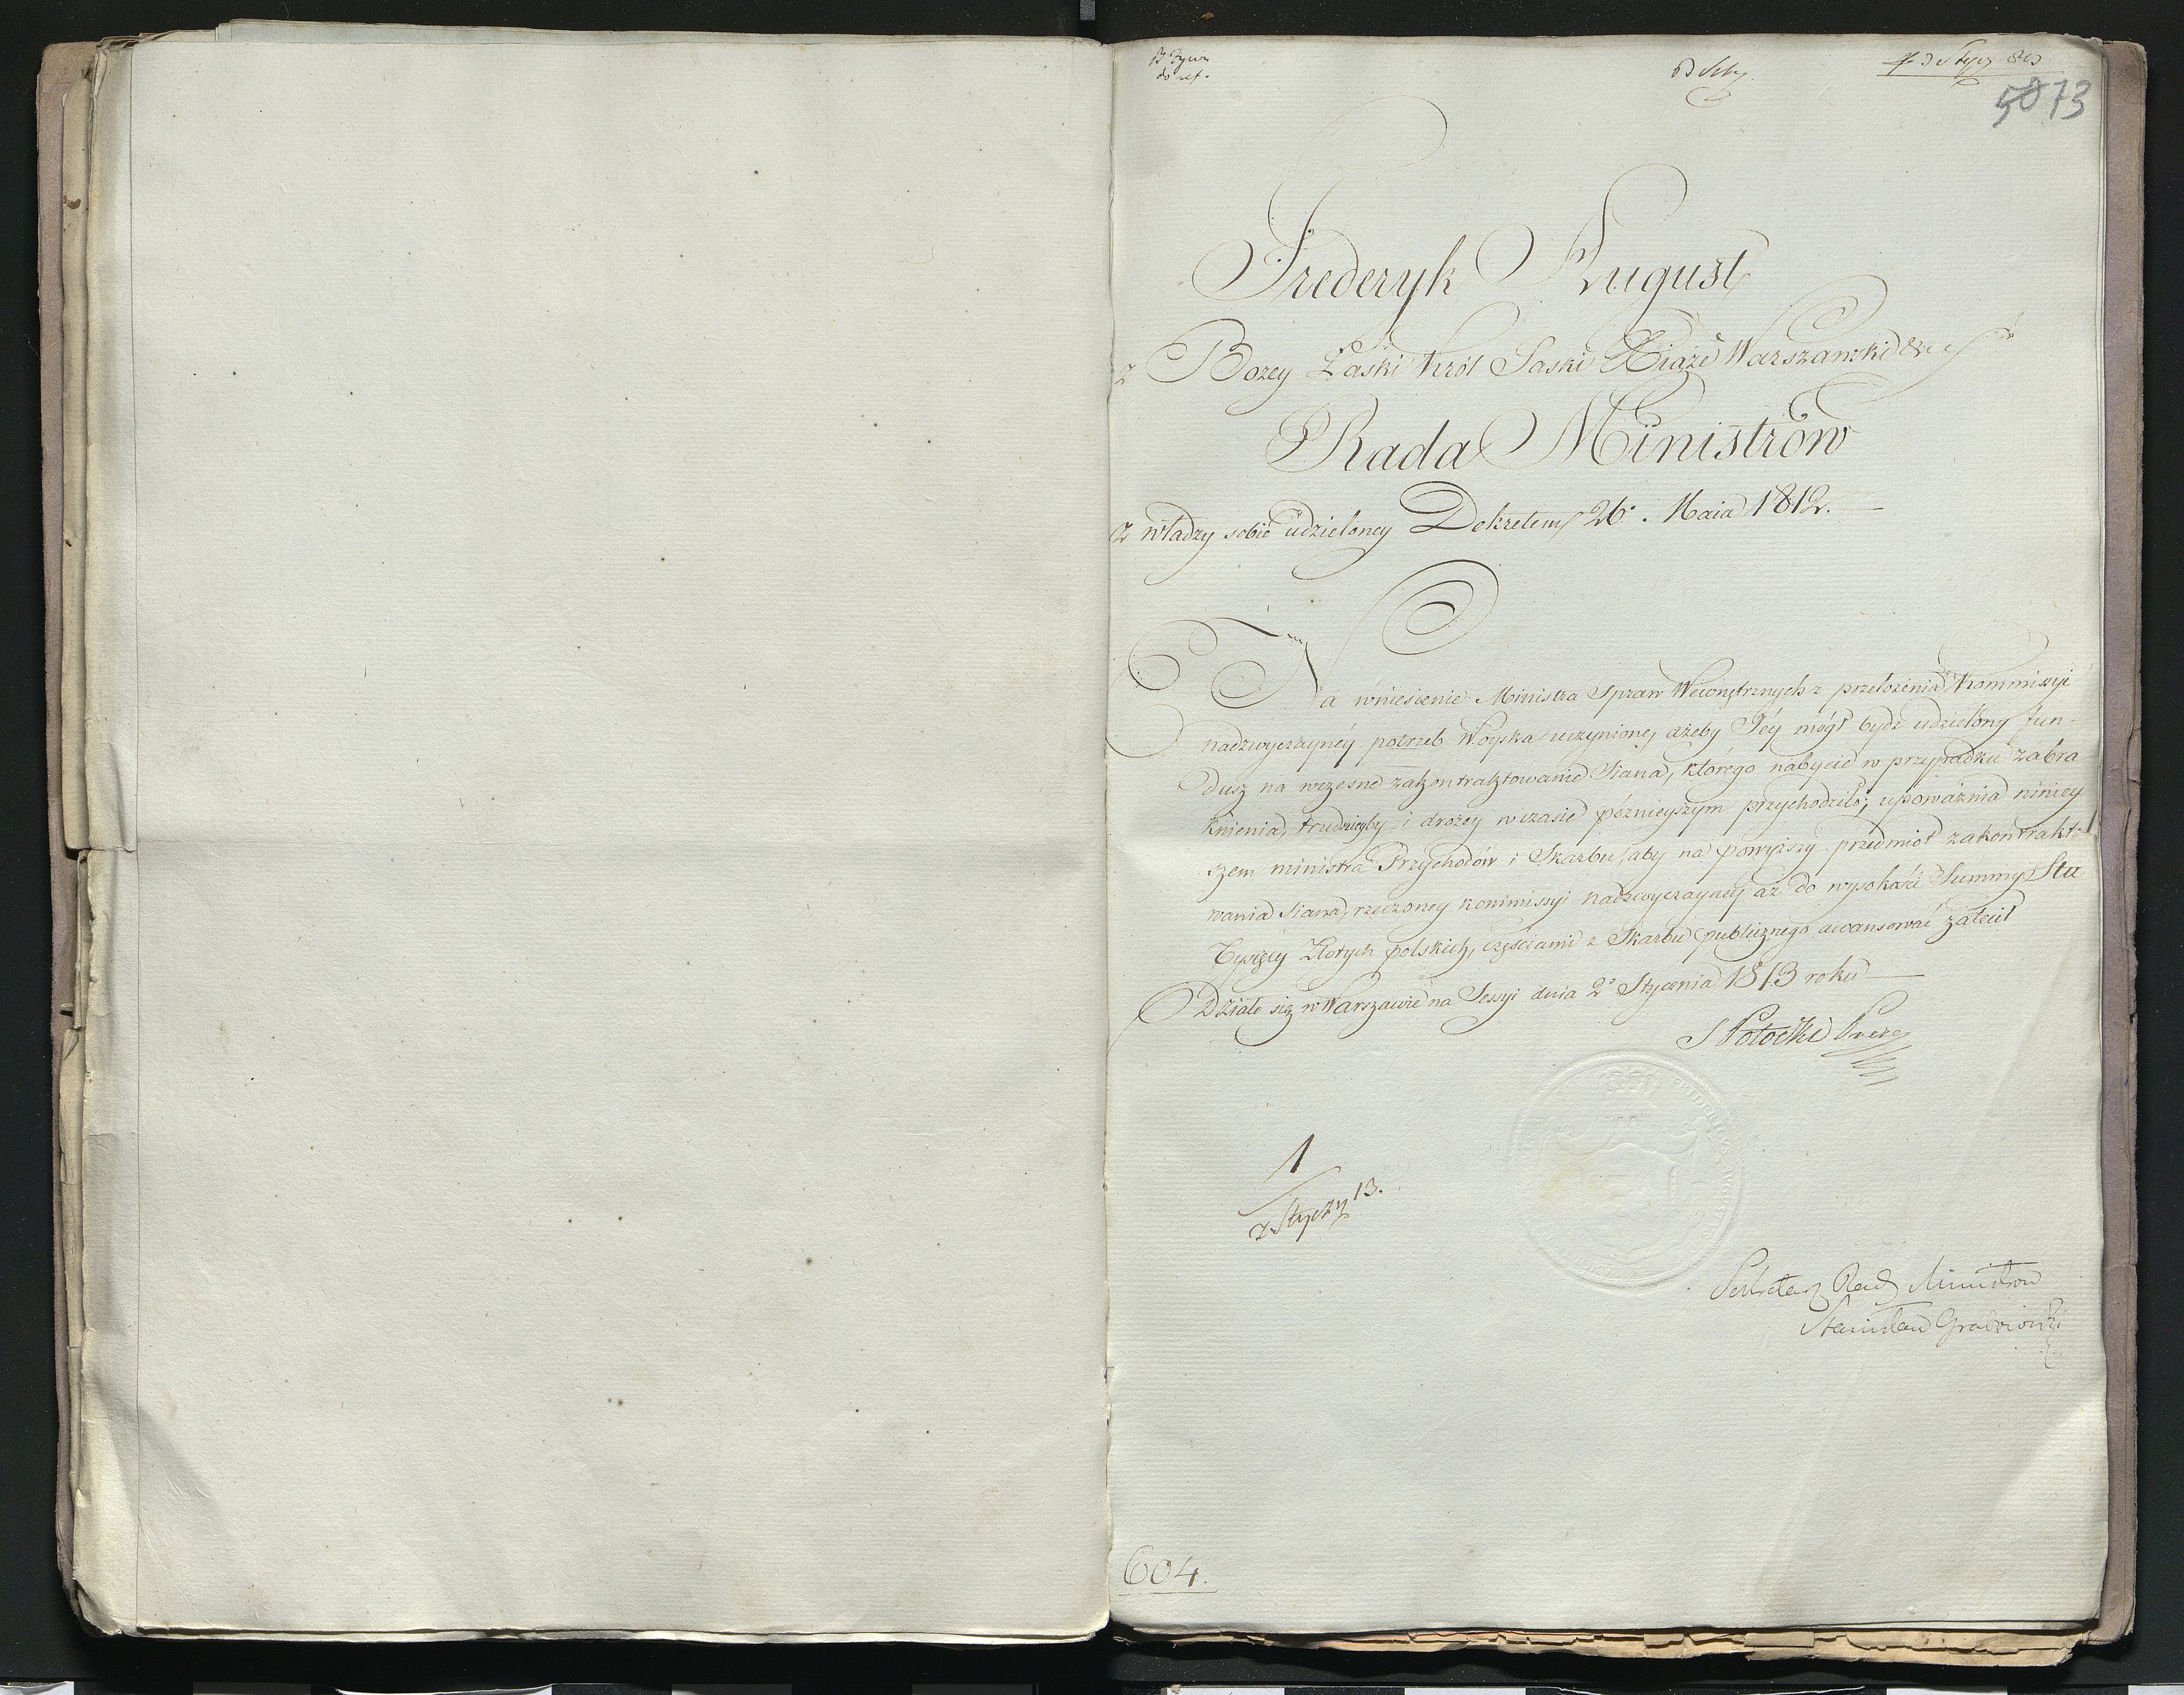 do ref.
5073
Frederyk August
z Bozey Łaski Król Saski Xiąże Warszawski &c
Rada Ministrów
z władzy sobie udzieloney Dekretem 26º Maia 1812.
Na wniesienie Ministra Spraw Wewnętrznych z przełożenia Kommissyi
nadzwyczayney potrzeb Woyska uczynione, ażeby Jey mógł bydź udzielony fun-
dusz na wczesne zakontraktowanie Siana, którego nabycie w przypadku zabra
knienia, trudnieyby i drożey w czasie póznieyszym przychodziło; upoważnia niniey
szem ministra Przychodów i Skarbu, aby na powyższy przedmiot zakontrakto
wania siana, rzeczoney kommissyi nadzwyczayney aż do wysokości Summy Stu
Tysięcy Złotych polskich, częściami z Skarbu publicznego awansować zalecił
Działo się w Warszawie na Sessyi dnia 2º Stycznia 1813 roku
S Potocki Prezes
1
13.
Sekretarz Rady Ministrow
Stanisław Grabowski
604.